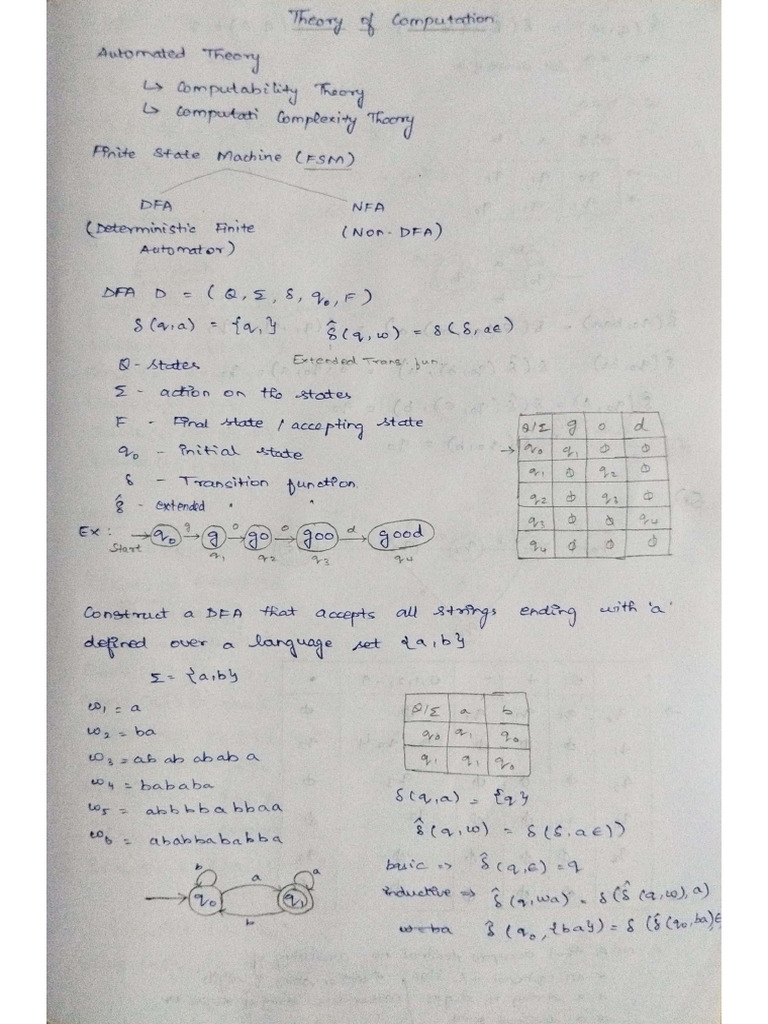 Theory of Computation
Automated Theory
↳ Computability Theory
↳ Computati Complexity Theory
Finite State Machine (FSM)
DFA NFA
(Deterministic Finite (Non-DFA)
Automator)
DFA D = (Q, Σ, δ, q₀, F)
δ(q,a) = {q,} δ̂(q,w) = δ(δ,aϵ)
Extended Trans. fun.
Q - states
Σ - action on the states
F - Final state / accepting state
q₀ - initial state
δ - Transition function
δ̂ - Extended " "
Q/Σ g o d
→ q₀ q₁ ϕ ϕ
q₁ ϕ q₂ ϕ
q₂ ϕ q₃ ϕ
q₃ ϕ ϕ q₄
q₄ ϕ ϕ ϕ
Ex: Start → q₀ g→ g o→ go o→ goo d→ good
q₁ q₂ q₃ q₄
Construct a DFA that accepts all strings ending with 'a'
defined over a language set {a,b}
Σ = {a,b}
w₁ = a
w₂ = ba
w₃ = ab ab abab a
w₄ = bababa
w₅ = abbbbabbaa
w₆ = ababbababba
Q/Σ a b
q₀ q₁ q₀
q₁ q₁ q₀
δ(q,a) = {q}
δ̂(q,w) = δ(δ,aϵ))
basic => δ̂(q,ϵ) = q
inductive => δ̂(q,wa) = δ(δ̂(q,w),a)
w=ba δ̂(q₀,{ba}) = δ(δ̂(q₀,ba)ϵ
b a a
q₀ q₁
b